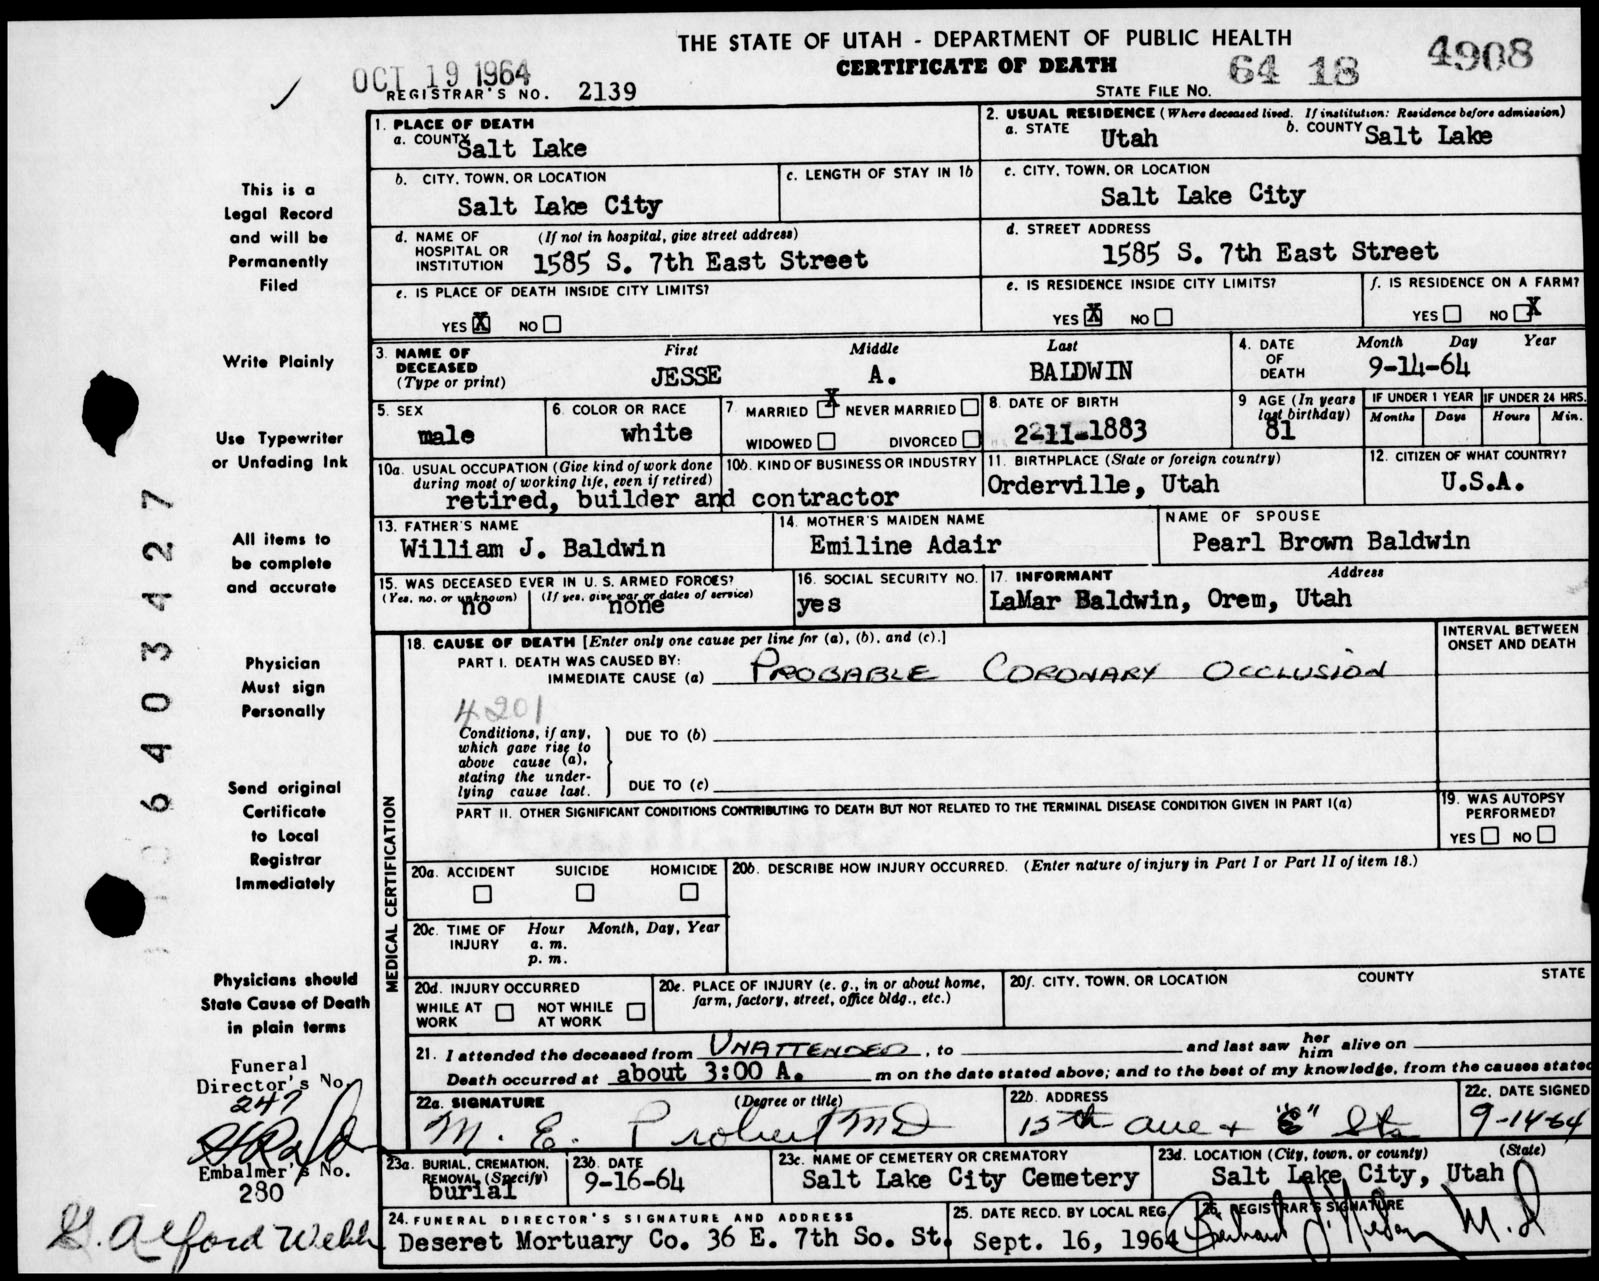 THE STATE OF UTAH - DEPARTMENT OF PUBLIC HEALTH
CERTIFICATE OF DEATH
64 18 4908
STATE FILE NO.
OCT 19 1964
REGISTRAR'S NO. 2139
This is a
Legal Record
and will be
Permanently
Filed
Write Plainly
Use Typewriter
or Unfading Ink
All items to
be complete
and accurate
Physician
Must sign
Personally
Send original
Certificate
to Local
Registrar
Immediately
Physicians should
State Cause of Death
in plain terms
Funeral
Director's No.
247
Embalmer's No.
280
G. Alford Webb
6403427
1. PLACE OF DEATH
a. COUNTY Salt Lake
2. USUAL RESIDENCE (Where deceased lived. If institution: Residence before admission)
a. STATE Utah b. COUNTY Salt Lake
b. CITY, TOWN, OR LOCATION
Salt Lake City
c. LENGTH OF STAY IN 1b
c. CITY, TOWN, OR LOCATION
Salt Lake City
d. NAME OF HOSPITAL OR INSTITUTION (If not in hospital, give street address)
1585 S. 7th East Street
d. STREET ADDRESS
1585 S. 7th East Street
e. IS PLACE OF DEATH INSIDE CITY LIMITS?
YES X NO
e. IS RESIDENCE INSIDE CITY LIMITS?
YES X NO
f. IS RESIDENCE ON A FARM?
YES NO X
3. NAME OF DECEASED (Type or print)
First Middle Last
JESSE A. BALDWIN
4. DATE OF DEATH
Month Day Year
9-14-64
5. SEX
male
6. COLOR OR RACE
white
7. MARRIED X NEVER MARRIED
WIDOWED DIVORCED
8. DATE OF BIRTH
2-11-1883
9 AGE (In years last birthday)
81
IF UNDER 1 YEAR
Months Days
IF UNDER 24 HRS.
Hours Min.
10a. USUAL OCCUPATION (Give kind of work done during most of working life, even if retired)
10b. KIND OF BUSINESS OR INDUSTRY
retired, builder and contractor
11. BIRTHPLACE (State or foreign country)
Orderville, Utah
12. CITIZEN OF WHAT COUNTRY?
U.S.A.
13. FATHER'S NAME
William J. Baldwin
14. MOTHER'S MAIDEN NAME
Emiline Adair
NAME OF SPOUSE
Pearl Brown Baldwin
15. WAS DECEASED EVER IN U. S. ARMED FORCES?
(Yes, no, or unknown) (If yes, give war or dates of service)
no none
16. SOCIAL SECURITY NO.
yes
17. INFORMANT Address
LaMar Baldwin, Orem, Utah
MEDICAL CERTIFICATION
18. CAUSE OF DEATH [Enter only one cause per line for (a), (b), and (c).]
INTERVAL BETWEEN ONSET AND DEATH
PART I. DEATH WAS CAUSED BY:
IMMEDIATE CAUSE (a) PROBABLE CORONARY OCCLUSION
4201
Conditions, if any,
which gave rise to
above cause (a),
stating the under-
lying cause last.
DUE TO (b)
DUE TO (c)
PART II. OTHER SIGNIFICANT CONDITIONS CONTRIBUTING TO DEATH BUT NOT RELATED TO THE TERMINAL DISEASE CONDITION GIVEN IN PART I(a)
19. WAS AUTOPSY PERFORMED?
YES NO
20a. ACCIDENT SUICIDE HOMICIDE
20b. DESCRIBE HOW INJURY OCCURRED. (Enter nature of injury in Part I or Part II of item 18.)
20c. TIME OF INJURY Hour Month, Day, Year
a. m.
p. m.
20d. INJURY OCCURRED
WHILE AT WORK NOT WHILE AT WORK
20e. PLACE OF INJURY (e. g., in or about home, farm, factory, street, office bldg., etc.)
20f. CITY, TOWN, OR LOCATION COUNTY STATE
21. I attended the deceased from UNATTENDED, to and last saw her him alive on
Death occurred at about 3:00 A. m on the date stated above; and to the best of my knowledge, from the causes stated
22a. SIGNATURE (Degree or title)
M. E. Probert MD
22b. ADDRESS
15th ave + "E" Sts
22c. DATE SIGNED
9-14-64
23a. BURIAL, CREMATION, REMOVAL (Specify)
burial
23b. DATE
9-16-64
23c. NAME OF CEMETERY OR CREMATORY
Salt Lake City Cemetery
23d. LOCATION (City, town, or county) (State)
Salt Lake City, Utah
24. FUNERAL DIRECTOR'S SIGNATURE AND ADDRESS
Deseret Mortuary Co. 36 E. 7th So. St.
25. DATE RECD. BY LOCAL REG.
Sept. 16, 1964
26. REGISTRAR'S SIGNATURE
M.D